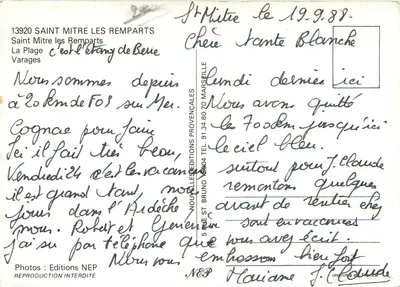 St Mitre le 19.9.88.
13920 SAINT MITRE LES REMPARTS
Saint Mitre les Remparts
La Plage c'est l'étang de Berre
Varages
Chère tante Blanche
Nous sommes depuis lundi dernier ici
à 20 km de FOS sur Mer. Nous avons quitté
Cognac pour faire les 700 km jusqu'ici
Ici il fait très beau, le ciel bleu.
Vendredi 24 c'est les vacances surtout pour J. Claude
il est grand tant, nous remontons quelques
jours dans l'Ardèche, avant de rentrer chez
nous. Robert et Geneviève sont en vacances
j'ai su par téléphone que vous avez écrit.
Nous vous embrassons bien fort
Mariane J. Claude
Photos : Editions NEP
REPRODUCTION INTERDITE
NEP
NOUVELLES EDITIONS PROVENÇALES
5 RUE ST BRUNO 13004 TEL. 91 34 80 70 MARSEILLE